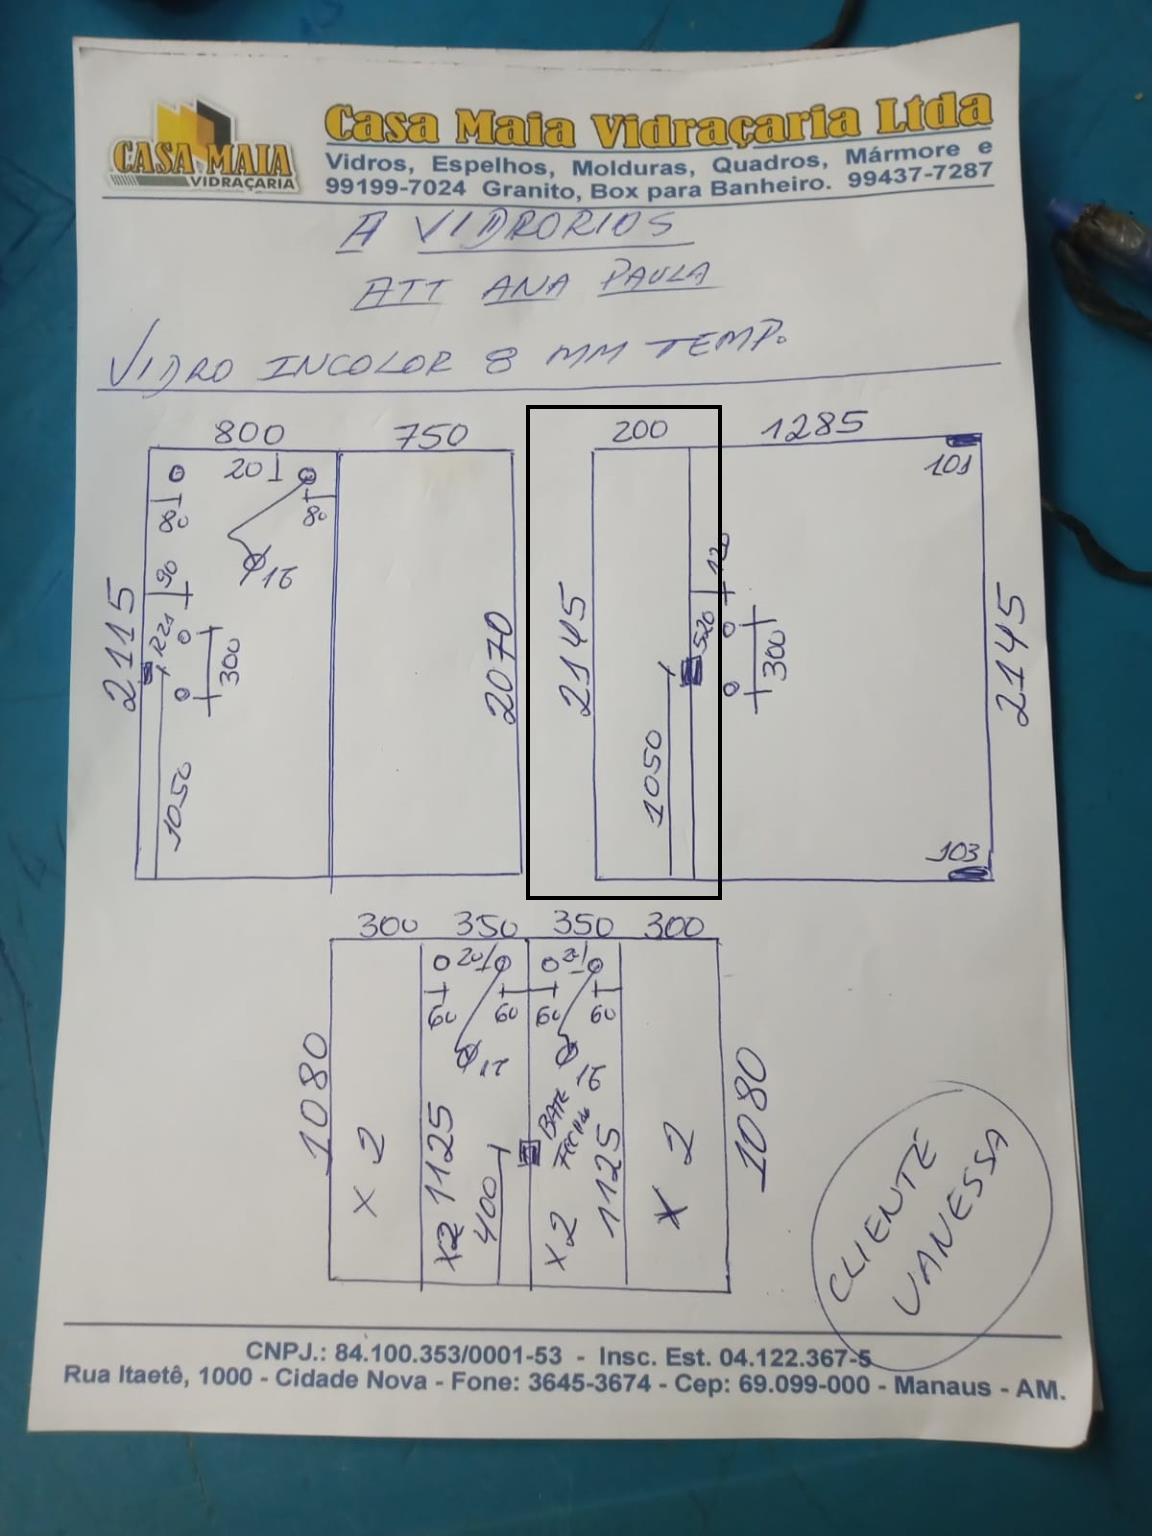 CASA MAIA
VIDRAÇARIA
Casa Maia Vidraçaria Ltda
Vidros, Espelhos, Molduras, Quadros, Mármore e
99199-7024 Granito, Box para Banheiro. 99437-7287
A VIDRORIOS
ATT ANA PAULA
VIDRO INCOLOR 8 MM TEMP.
800 750 200 1285
20 101
80 80
16
90 120
2115 300 2070 2145 520 300 2145
1050 1050
103
300 350 350 300
20
60 60 60 60
16
1080 BATE 1080
X 2 X2 1125 400 X 2 1125 X 2
CLIENTE
VANESSA
CNPJ.: 84.100.353/0001-53 - Insc. Est. 04.122.367-5
Rua Itaetê, 1000 - Cidade Nova - Fone: 3645-3674 - Cep: 69.099-000 - Manaus - AM.